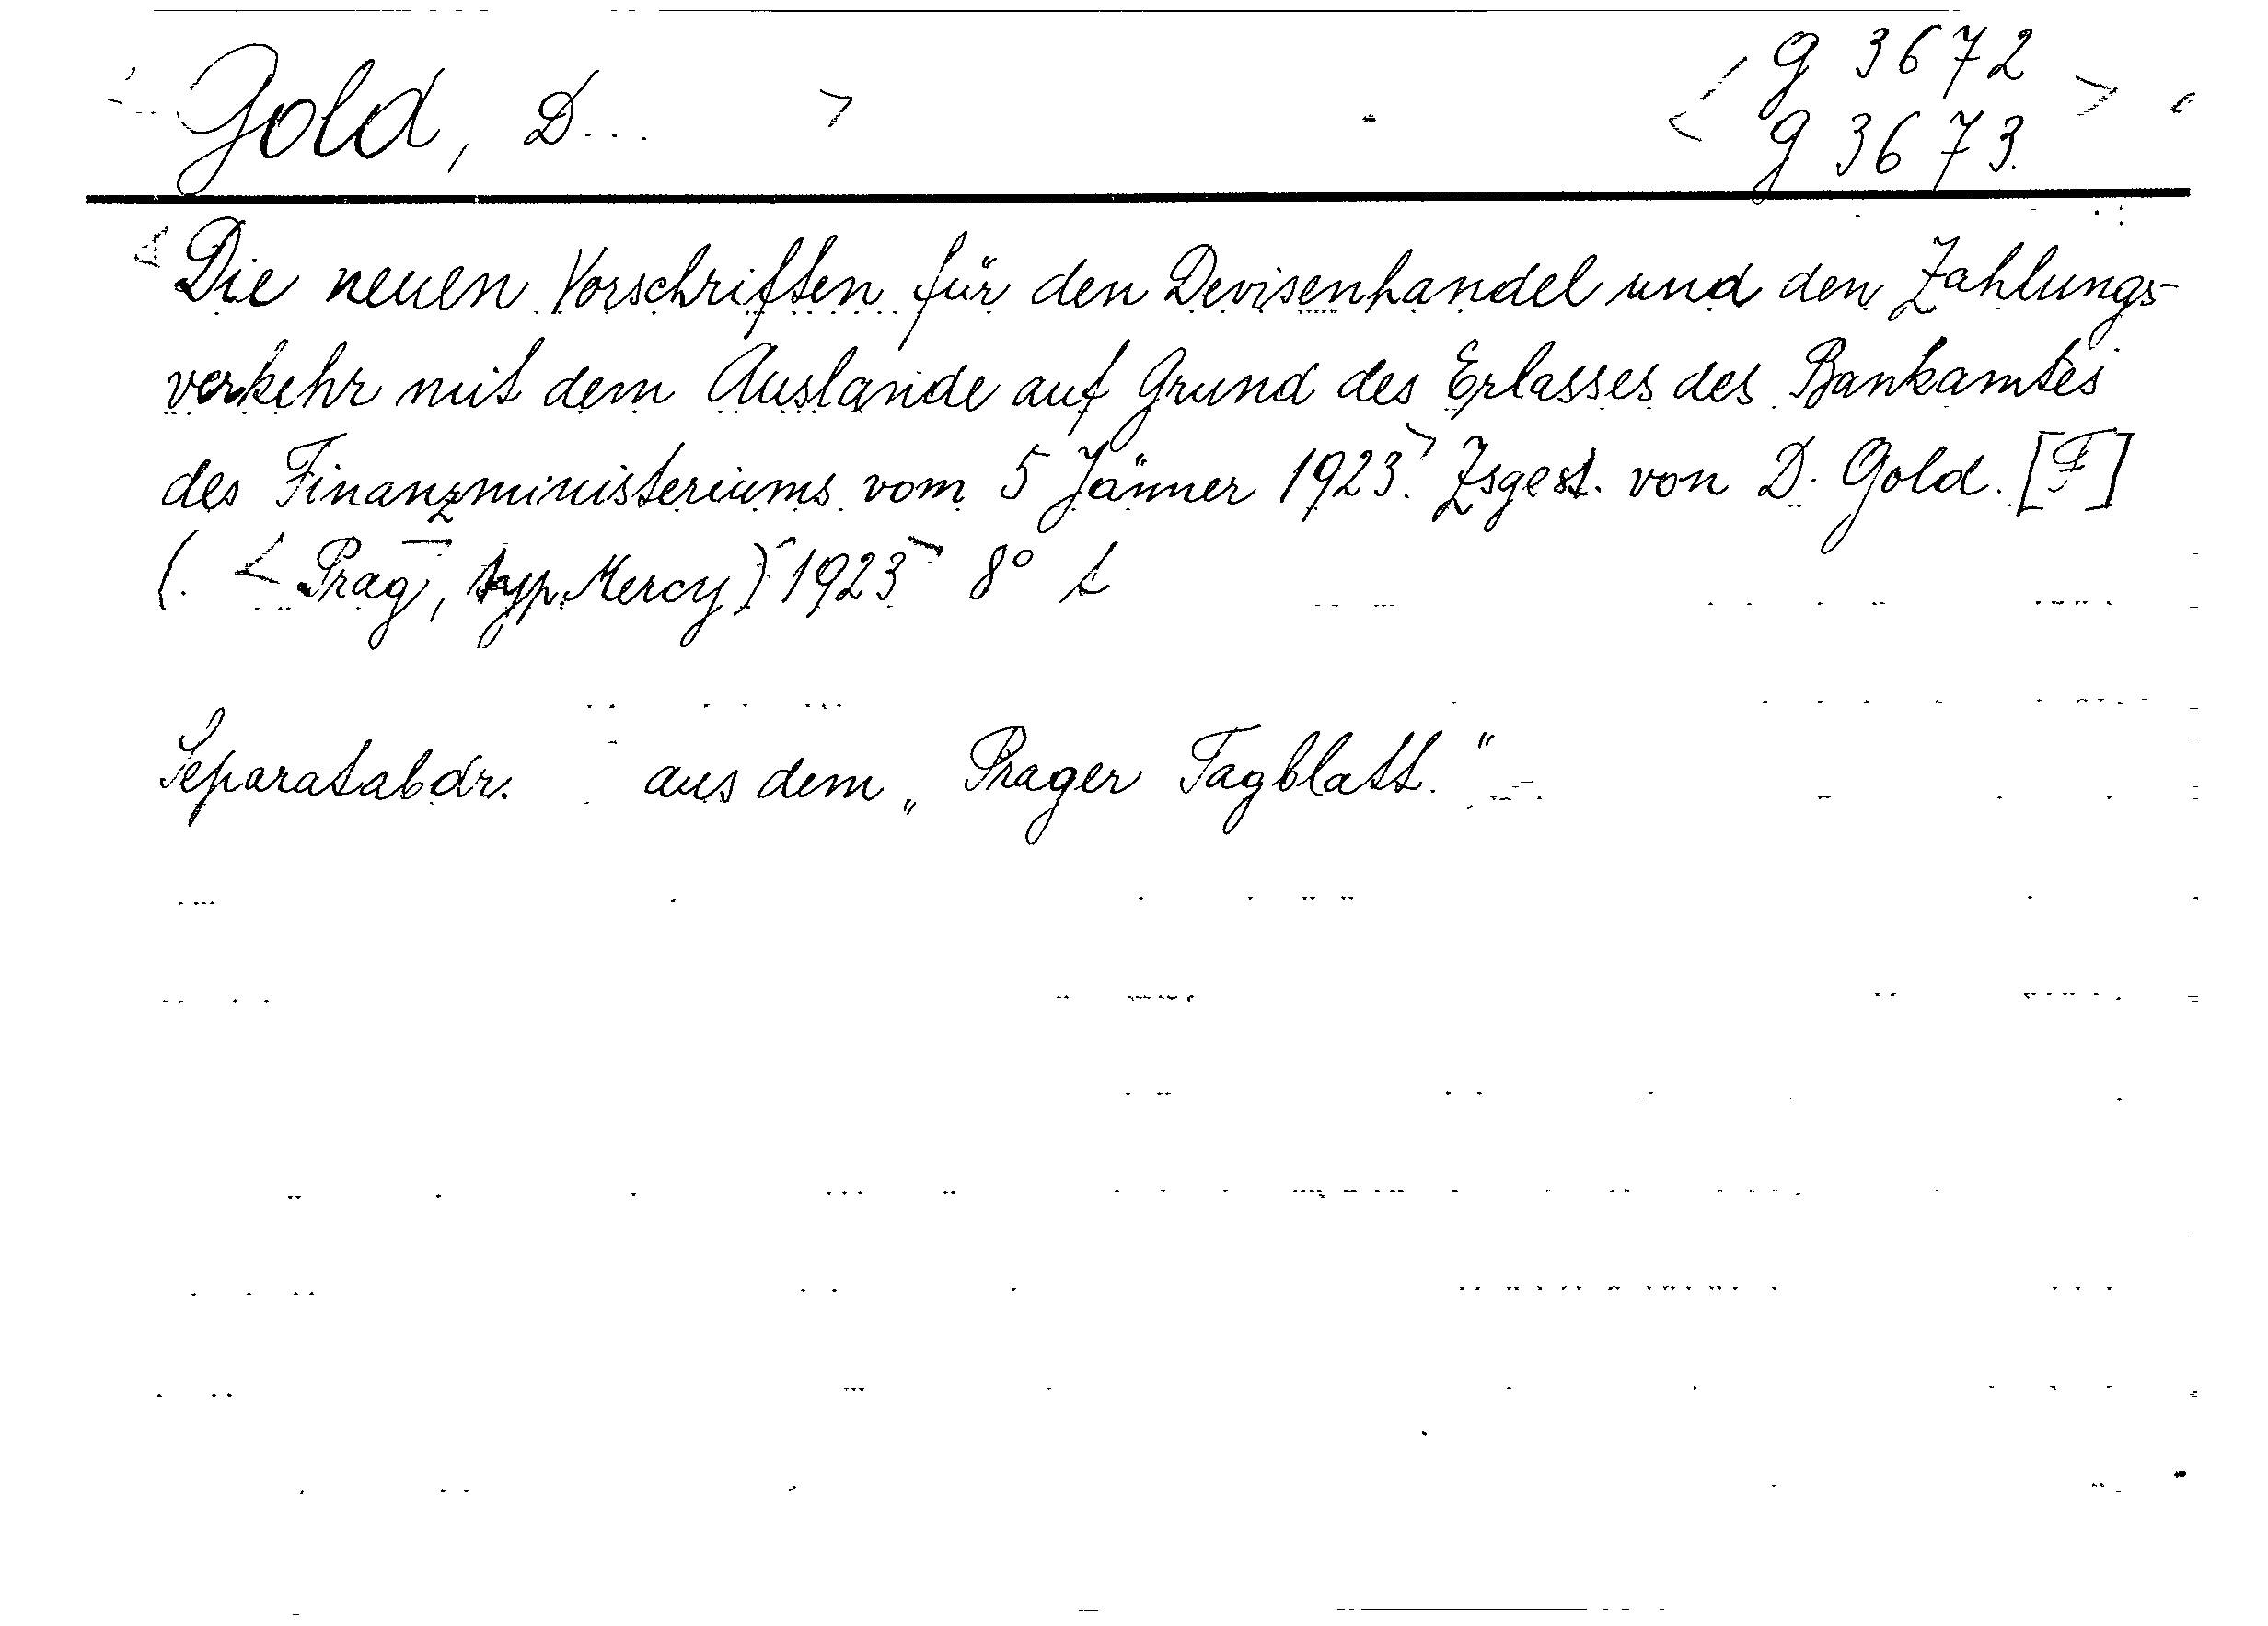 < Gold, D... > < g 3672
g 3673. >
< Die neuen Vorschriften für den Devisenhandel und den Zahlungs-
verkehr mit dem Auslande auf Grund des Erlasses des Bankamtes
des Finanzministeriums vom 5 Jänner 1923.> Zsgest. von D. Gold. [F]
(. < Prag, typ. Mercy) 1923> 8°
Separatabdr. aus dem „Prager Tagblatt."